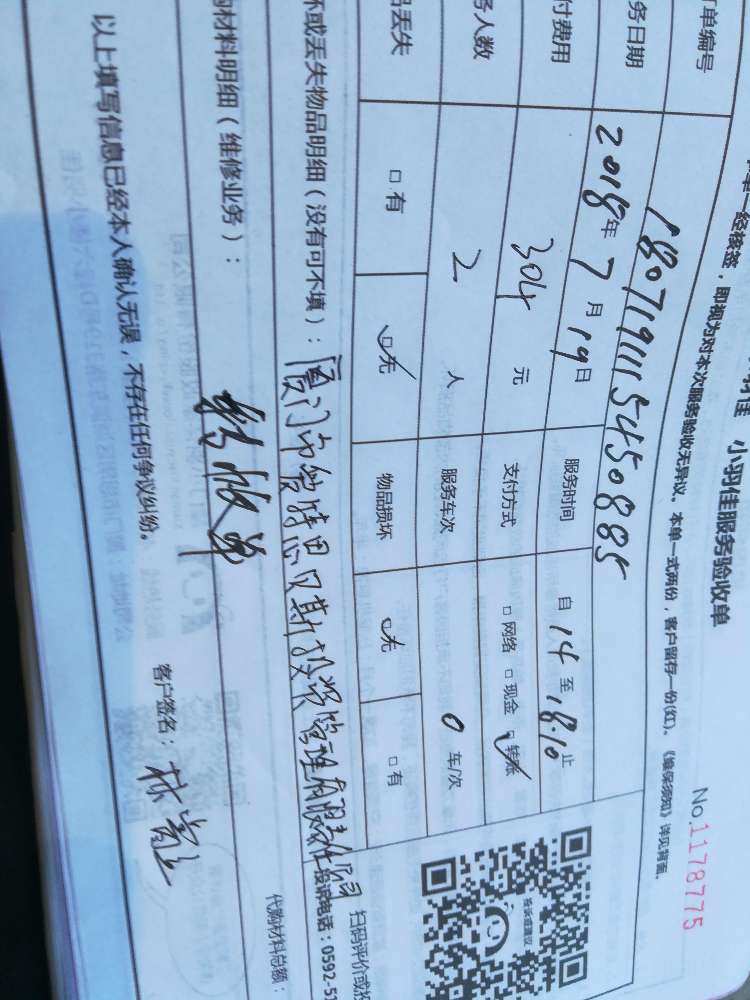 小羽佳服务验收单
即视为对本次服务验收无异议。本单一式两份，客户留存一份(红)。《维保须知》详见背面。
No.1178775
单编号 180719111545450885
务日期 2018年7月19日 服务时间 自14至18.10止
付费用 304元 支付方式 □网络 □现金 ☑转账
人数 2人 服务车次 0车/次
丢失 □有 ☑无 物品损坏 ☑无 □有
坏或丢失物品明细（没有可不填）：
厦门市普特思贝斯投资管理有限责任公司
材料明细（维修业务）：
验收单
代购材料总额：
以上填写信息已经本人确认无误，不存在任何争议纠纷。
客户签名：
扫码评价或投
投诉电话：0592-5
投诉或建议